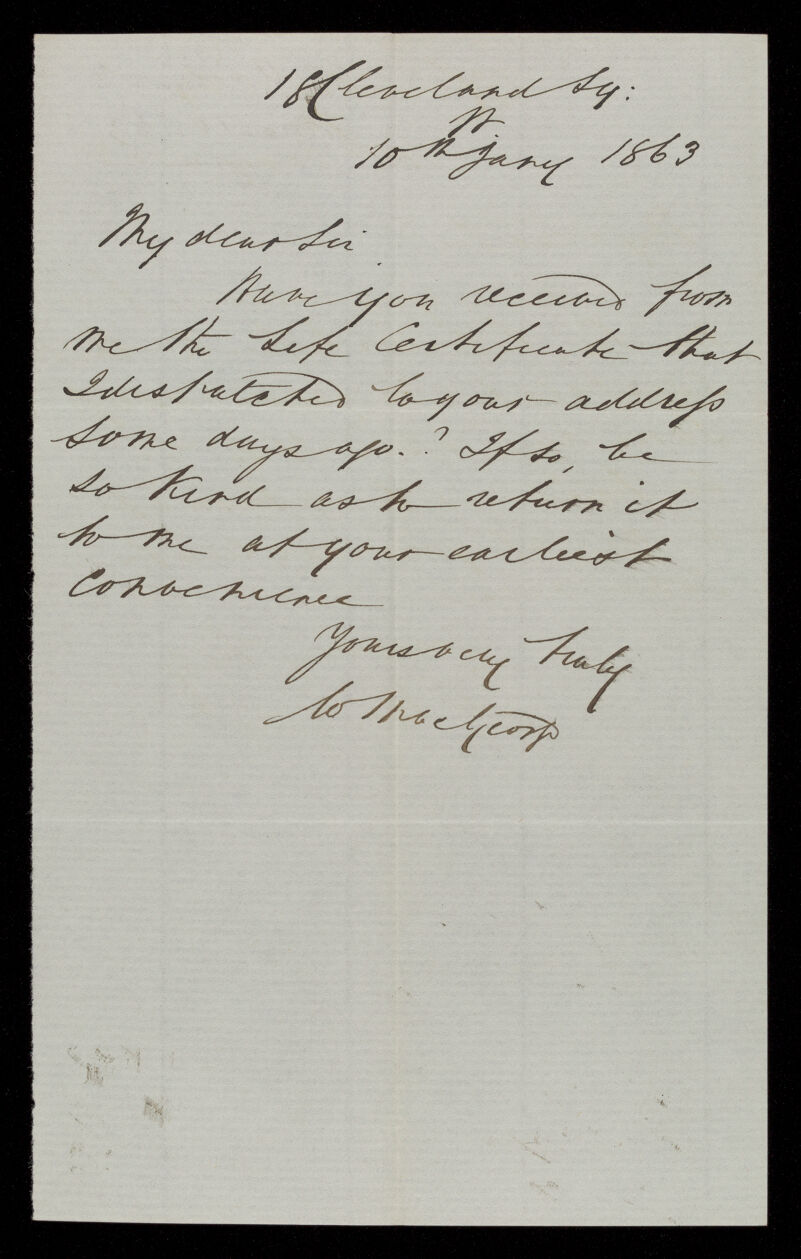 18 Cleveland Sq:
W
10th Jany 1863
My dear Sir
Have you received from
me the Life Certificate that
I dispatched to your address
some days ago.? If so, be
so kind as to return it
to me at your earliest
convenience
Yours very truly
W MacGeorge